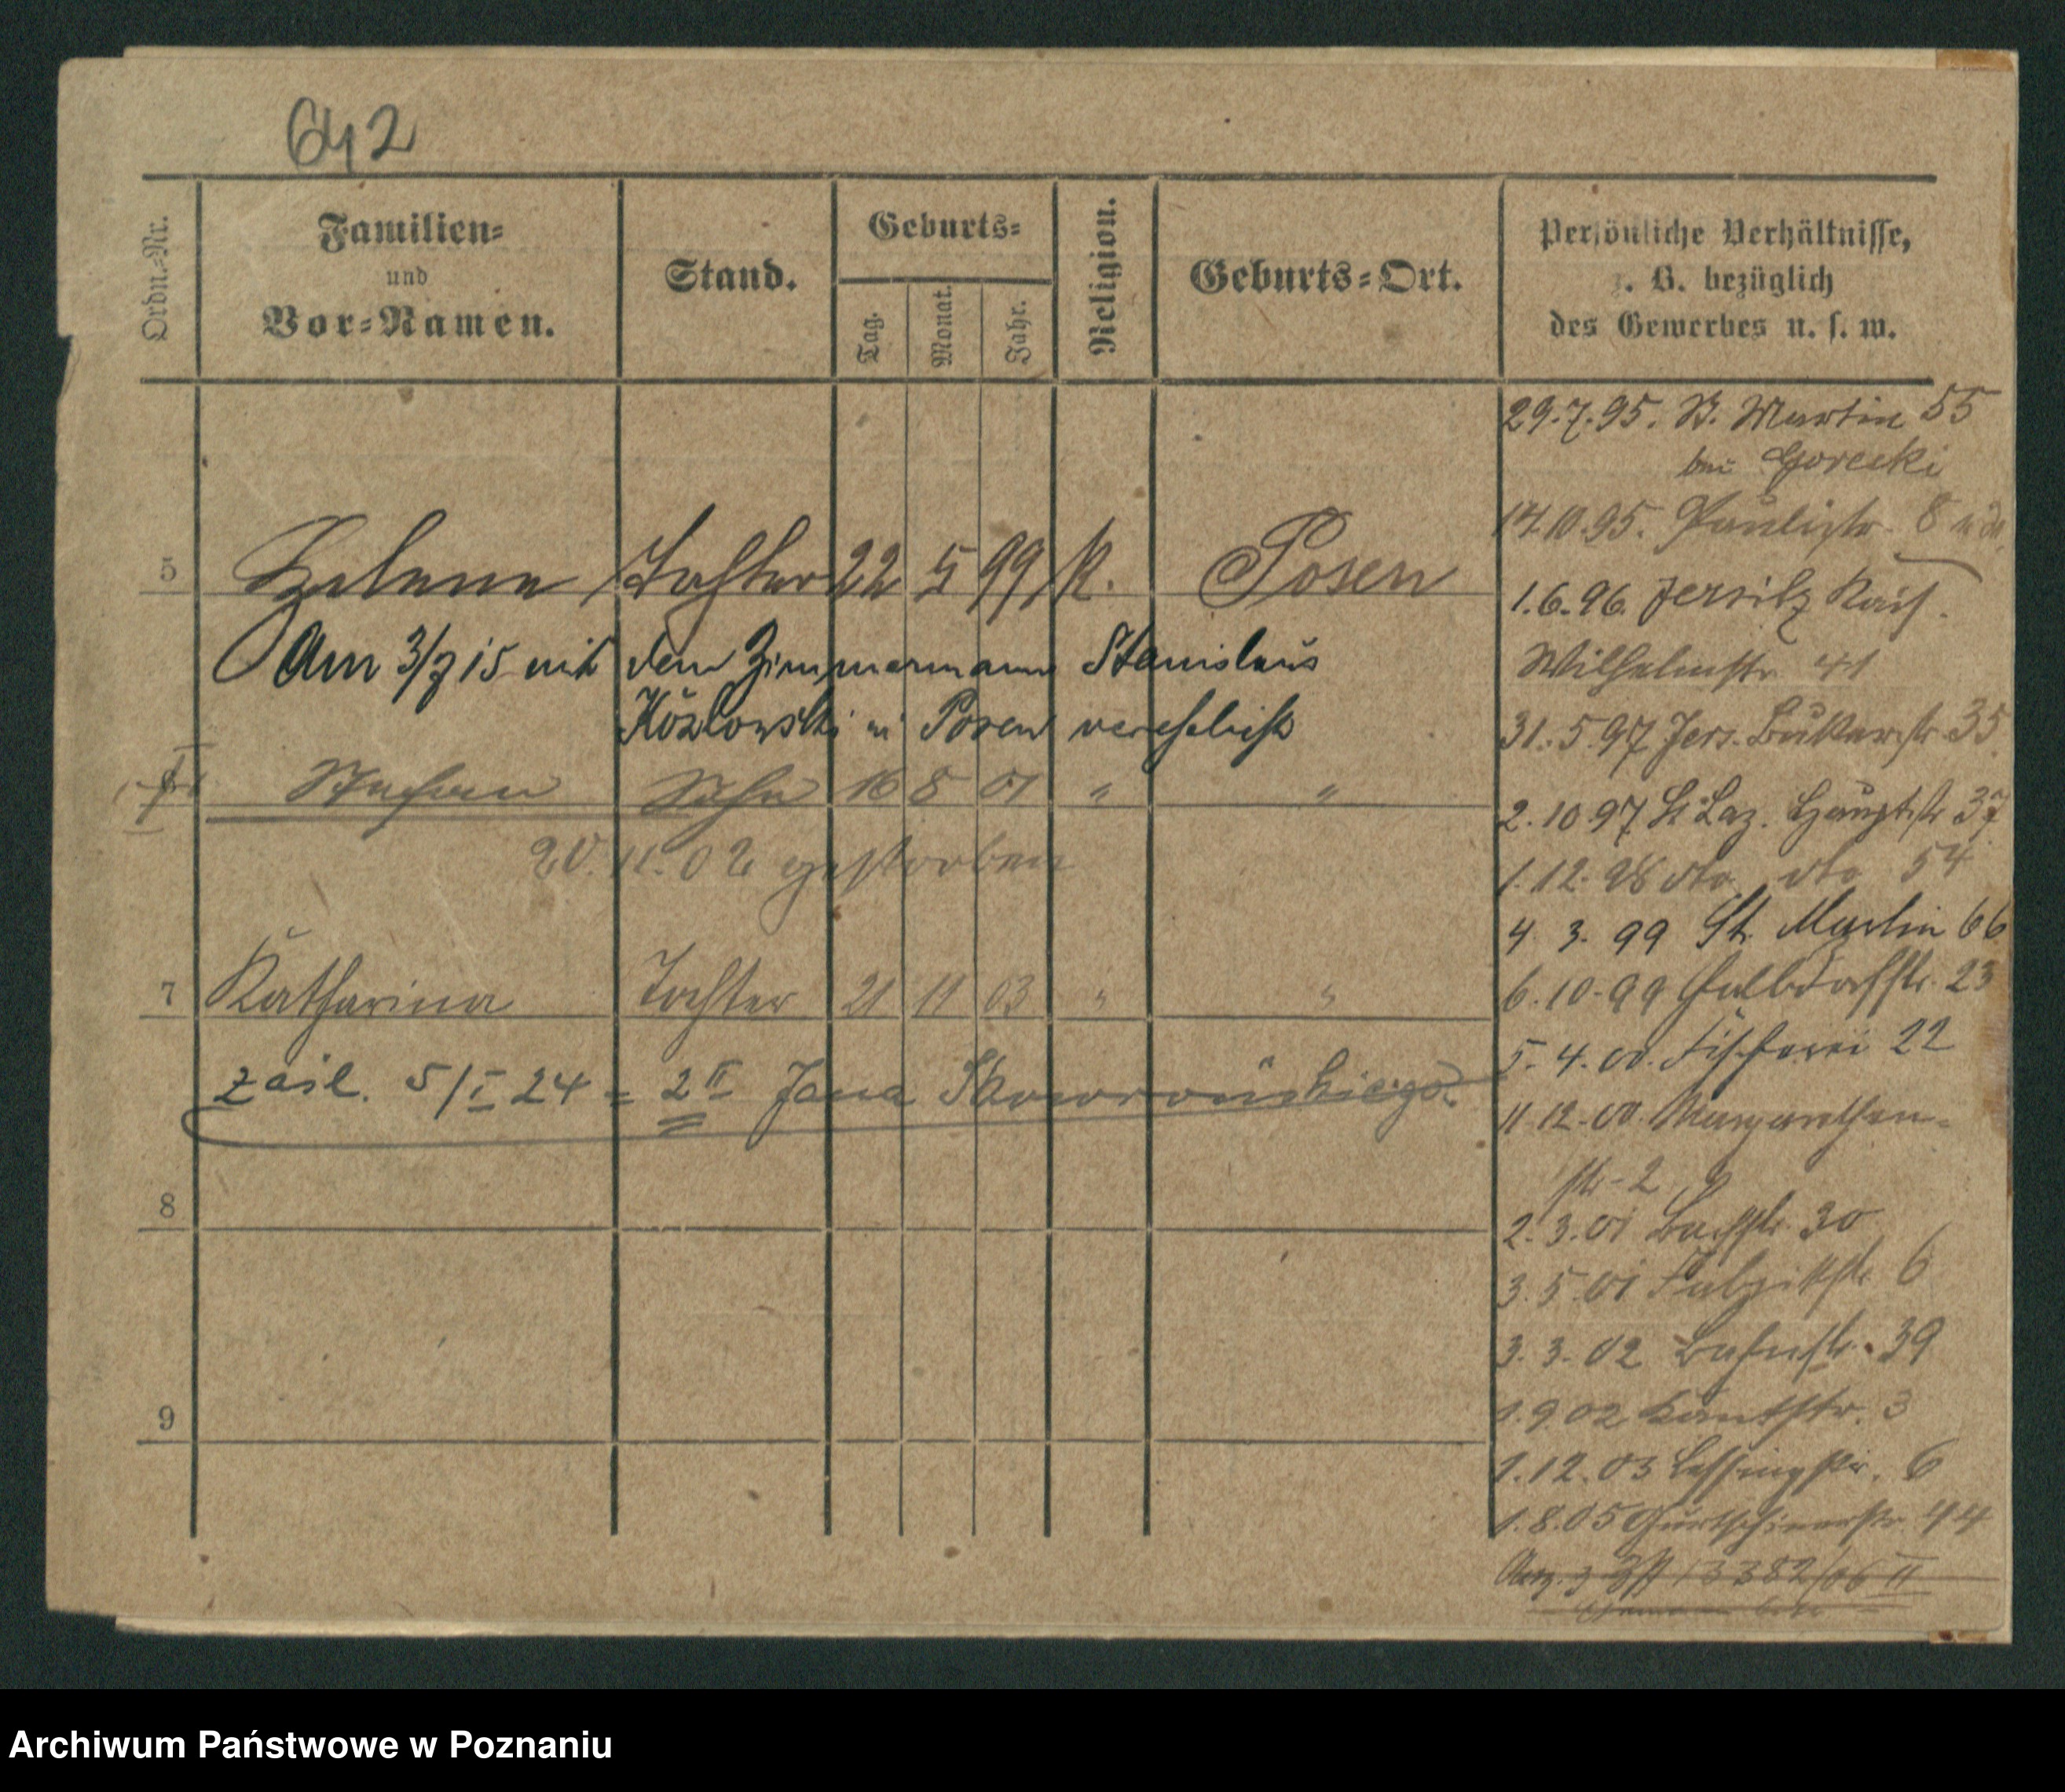 642
Ordn.-Nr.
Familien-
und
Vor-Namen.
Stand.
Geburts-
Tag.
Monat.
Jahr.
Religion.
Geburts-Ort.
Persönliche Verhältnisse,
z. B. bezüglich
des Gewerbes u. s. w.
29.7.95. St. Martin 55
bei Gorecki
14.10.95. Paulistr. 8
5 Helene Tochter 22 5 99 K. Posen
1.6.96. Jersitz Kais.
Am 3/7 15 mit dem Zimmermann Stanislaus
Wilhelmstr. 41
Kozlowski in Posen verehelicht
31.5.97 Jers. Bukerstr. 35
Stefan Sohn 16 8 01 " "
2.10 97 St. Laz. Hauptstr. 37
20.11.02 gestorben
1.12.98 dto. dto 54
4. 3. 99 St. Martin 66
7 Katharina Tochter 21 11 03 " "
6.10.99 Halbdorfstr. 23
5.4.00. Fischerei 22
zaśl. 5/I 24 = 2 II Jana Skowrońskiego.
11.12.00. Margarethen-
str. 2
8
2.3.01 Bachstr. 30
3.5.01 6
3.3.02 Bahnstr. 39
9
1.9.02 Kantstr. 3
1.12.03 Lessingstr. 6
1.8.05 Gurtschinerstr. 44
13382/06 II
Archiwum Państwowe w Poznaniu